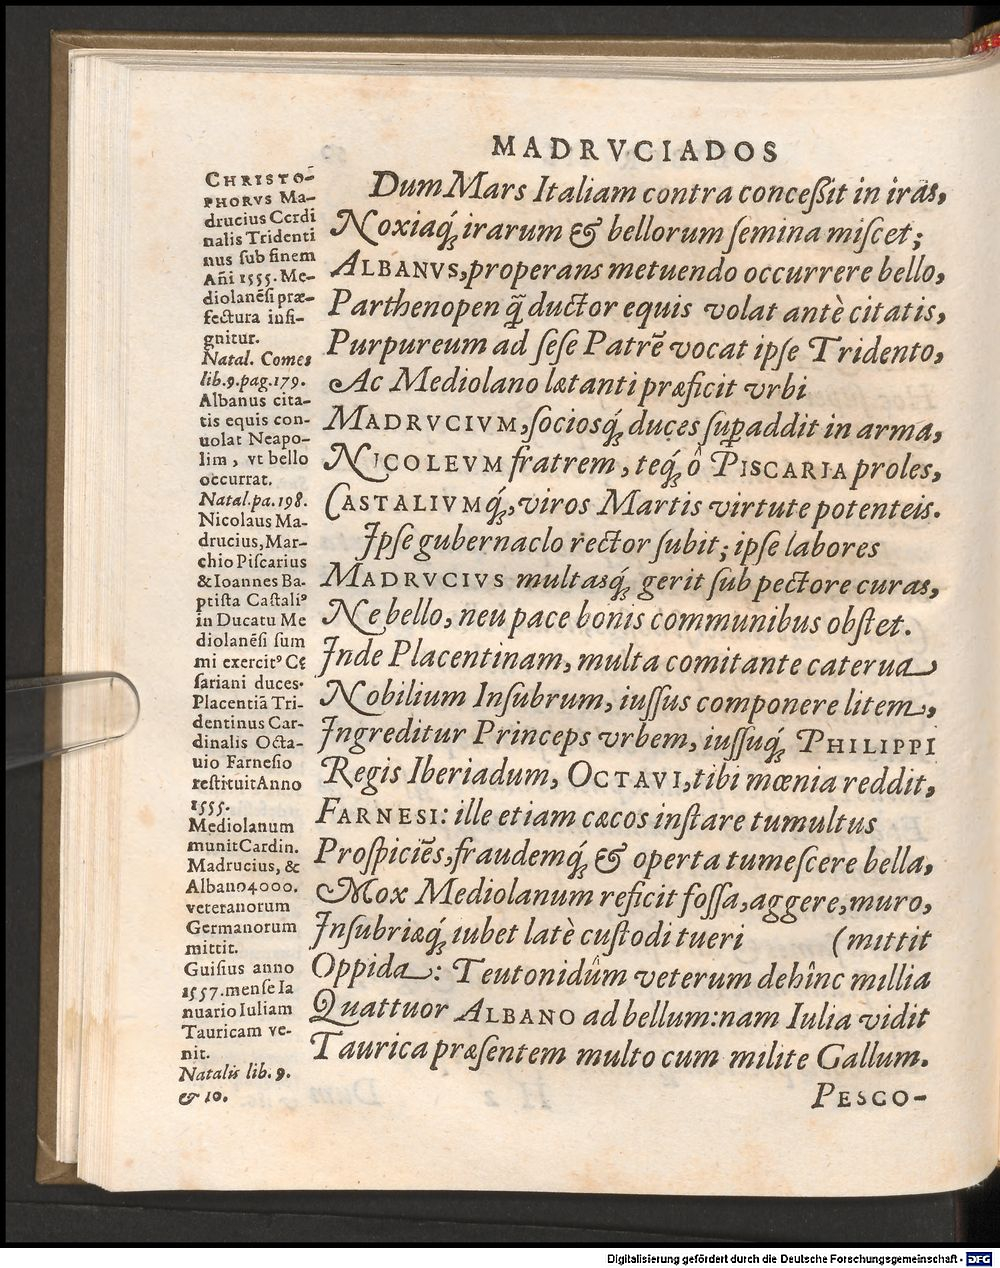 MADRVCIADOS
CHRISTO-
PHORVS Ma-
drucius Cerdi
nalis Tridenti
nus sub finem
Añi 1555. Me-
diolanēsi præ-
fectura insi-
gnitur.
Natal. Comes
lib.9.pag.179.
Albanus cita-
tis equis con-
uolat Neapo-
lim, vt bello
occurrat.
Natal.pa.198.
Nicolaus Ma-
drucius, Mar-
chio Piscarius
& Ioannes Ba-
ptista Castaliꝰ
in Ducatu Me
diolanēsi sum
mi exercitꝰ Cę
sariani duces.
Placentiā Tri-
dentinus Car-
dinalis Octa-
uio Farnesio
restituit Anno
1555.
Mediolanum
munit Cardin.
Madrucius, &
Albano 4000.
veteranorum
Germanorum
mittit.
Guisius anno
1557. mense Ia
nuario Iuliam
Tauricam ve-
nit.
Natalis lib. 9.
& 10.
Dum Mars Italiam contra concessit in iras,
Noxiaq́; irarum & bellorum semina miscet;
ALBANVS, properans metuendo occurrere bello,
Parthenopen q̃ ductor equis volat antè citatis,
Purpureum ad sese Patrē vocat ipse Tridento,
Ac Mediolano lætanti præficit vrbi
MADRVCIVM, sociosq́; duces suꝑaddit in arma,
NICOLEVM fratrem, teq́; ô PISCARIA proles,
CASTALIVMq́;, viros Martis virtute potenteis.
Ipse gubernaclo rector subit; ipse labores
MADRVCIVS multasq́; gerit sub pectore curas,
Ne bello, neu pace bonis communibus obstet.
Inde Placentinam, multa comitante caterua
Nobilium Insubrum, iussus componere litem,
Ingreditur Princeps vrbem, iussuq́; PHILIPPI
Regis Iberiadum, OCTAVI, tibi mœnia reddit,
FARNESI: ille etiam cæcos instare tumultus
Prospiciēs, fraudemq́; & operta tumescere bella,
Mox Mediolanum reficit fossa, aggere, muro,
Insubriæq́; iubet latè custodi tueri (mittit
Oppida: Teutonidûm veterum dehînc millia
Quattuor ALBANO ad bellum: nam Iulia vidit
Taurica præsentem multo cum milite Gallum.
PESCO-
Digitalisierung gefördert durch die Deutsche Forschungsgemeinschaft - DFG